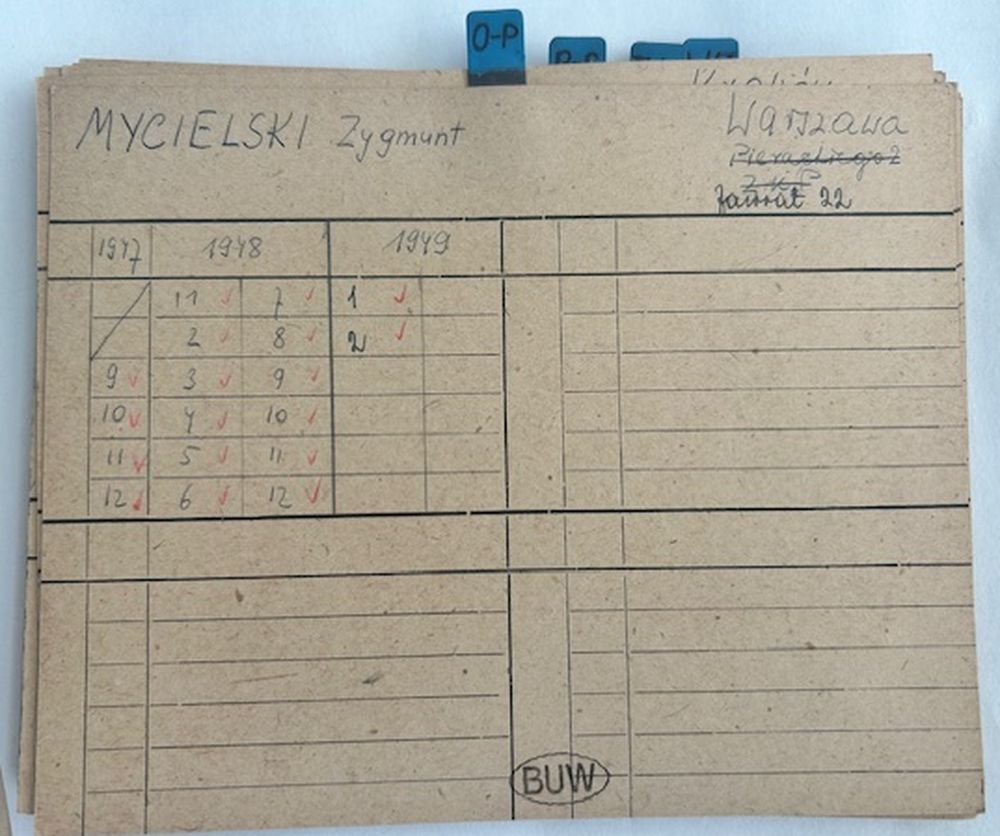 O-P
MYCIELSKI Zygmunt
Warszawa
Pierackiego 2
Z.K.P
22
1947 1948 1949
11 7 1
2 8 2
9 3 9
10 4 10
11 5 11
12 6 12
BUW